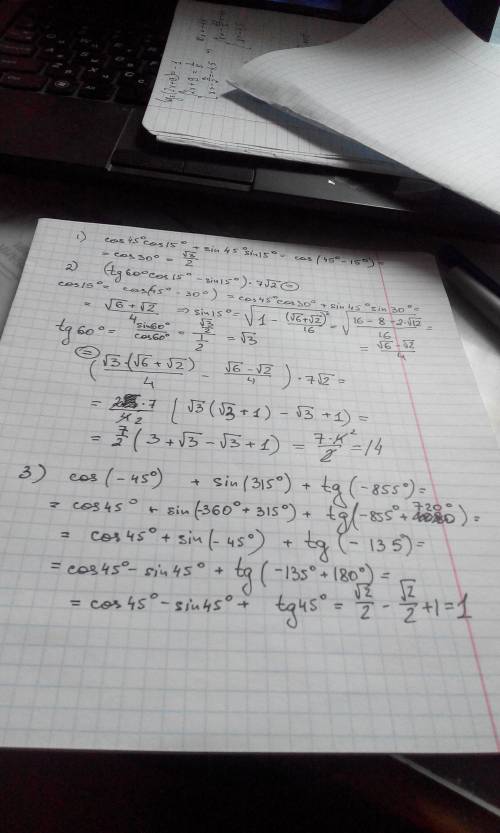 1) cos45°cos15° + sin45°sin15° = cos(45°-15°)=
= cos30° = √3/2
2) (tg60°cos15° - sin15°)·7√2 =
cos15° = cos(45°-30°) = cos45°cos30° + sin45°sin30° =
= (√6+√2)/4 ⇒ sin15° = √(1 - (√6+√2)²/16) = √((16-8-2·√12)/16) =
= (√6-√2)/4
tg60° = sin60°/cos60° = (√3/2)/(1/2) = √3
= (√3·(√6+√2)/4 - (√6-√2)/4)·7√2 =
= ·7/2 (√3(√3+1) - √3+1) =
= 7/2 (3+√3-√3+1) = 7·4²/2 = 14
3) cos(-45°) + sin(315°) + tg(-855°) =
= cos45° + sin(-360°+315°) + tg(-855°+720°) =
= cos45° + sin(-45°) + tg(-135°) =
= cos45° - sin45° + tg(-135°+180°) =
= cos45° - sin45° + tg45° = √2/2 - √2/2 + 1 = 1